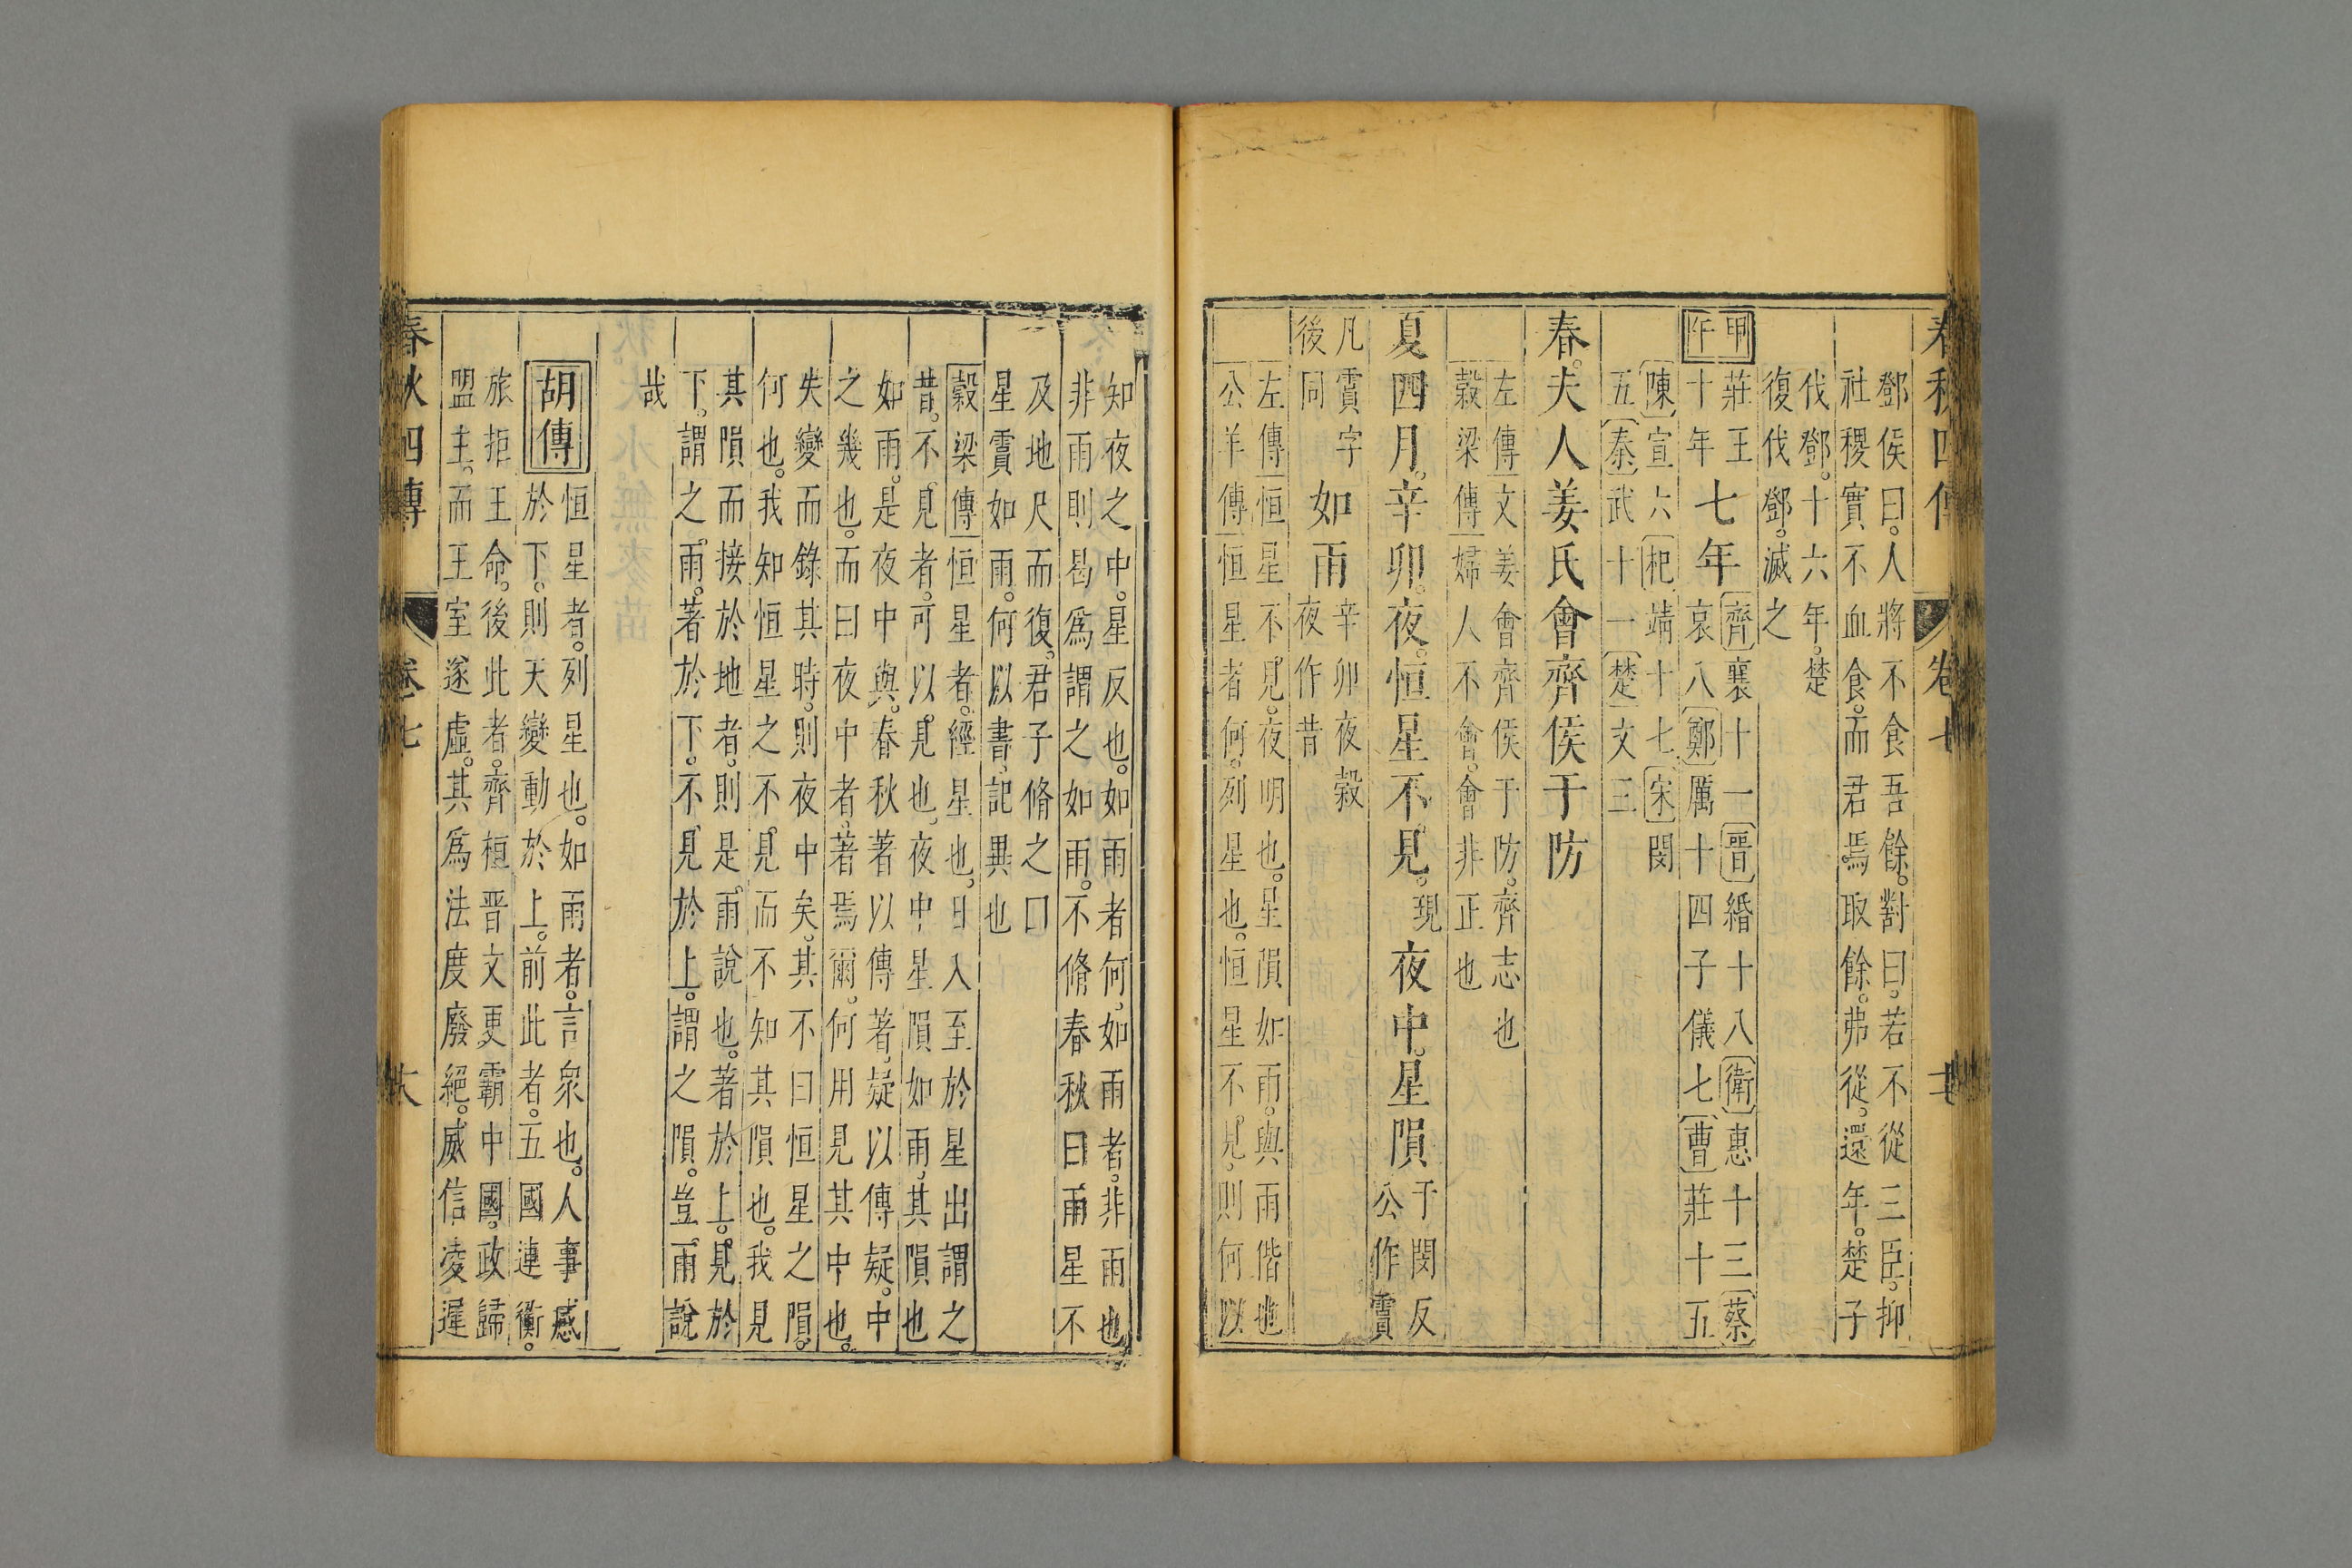 春秋四傳 卷七
鄧侯曰。人將不食吾餘。對曰。若不從三臣。抑
社稷實不血食。而君焉取餘。弗從。還年。楚子
伐鄧。十六年。楚
復伐鄧。滅之
甲午
莊王
十年
七年
齊襄十一晉緡十八衛惠十三蔡
哀八鄭厲十四子儀七曹莊十五
陳宣六杞靖十七宋閔
五秦武十一楚文三
春。夫人姜氏會齊侯于防
左傳文姜會齊侯于防。齊志也
穀梁傳婦人不會。會非正也
夏四月。辛卯。夜。恒星不見。現夜中。星隕
于閔反
公作霣
凡霣字
後同
如雨
辛卯夜穀
夜作昔
左傳恒星不見。夜明也。星隕如雨。與雨偕也
公羊傳恒星者何。列星也。恒星不見。則何以
知夜之中。星反也。如雨者何。如雨者。非雨也
非雨則曷爲謂之如雨。不脩春秋曰雨星不
及地尺而復。君子脩之曰
星霣如雨。何以書。記異也
穀梁傳恒星者。經星也。日入至於星出謂之
昔。不見者。可以見也。夜中星隕如雨。其隕也
如雨。是夜中與。春秋著以傳著。疑以傳疑。中
之幾也。而曰夜中者。著焉爾。何用見其中也。
失變而錄其時。則夜中矣。其不曰恒星之隕。
何也。我知恒星之不見。而不知其隕也。我見
其隕而接於地者。則是雨說也。著於上。見於
下。謂之雨。著於下。不見於上。謂之隕。豈雨說
哉
胡傳
恒星者。列星也。如雨者。言衆也。人事感
於下。則天變動於上。前此者。五國連衡。
旅拒王命。後此者。齊桓晉文更霸中國。政歸
盟主。而王室遂虛。其爲法度廢絕。威信凌遲
春秋四傳 卷七